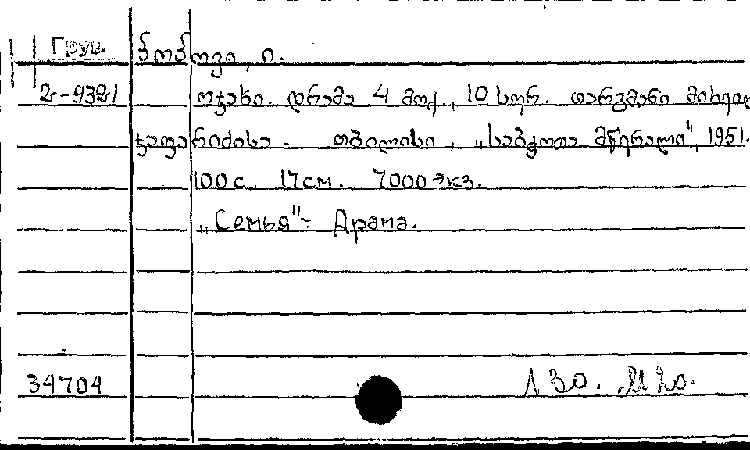 Груз.
პოპოვი, ი.
ოჯახი. დრამა 4 მოქ., 10 სურ. თარგმანი მიხეილ
ჯაფარიძისა. თბილისი, „საბჭოთა მწერალი", 1951.
100 с. 17 см. 7000 экз.
„Семья" - Драма.
34704